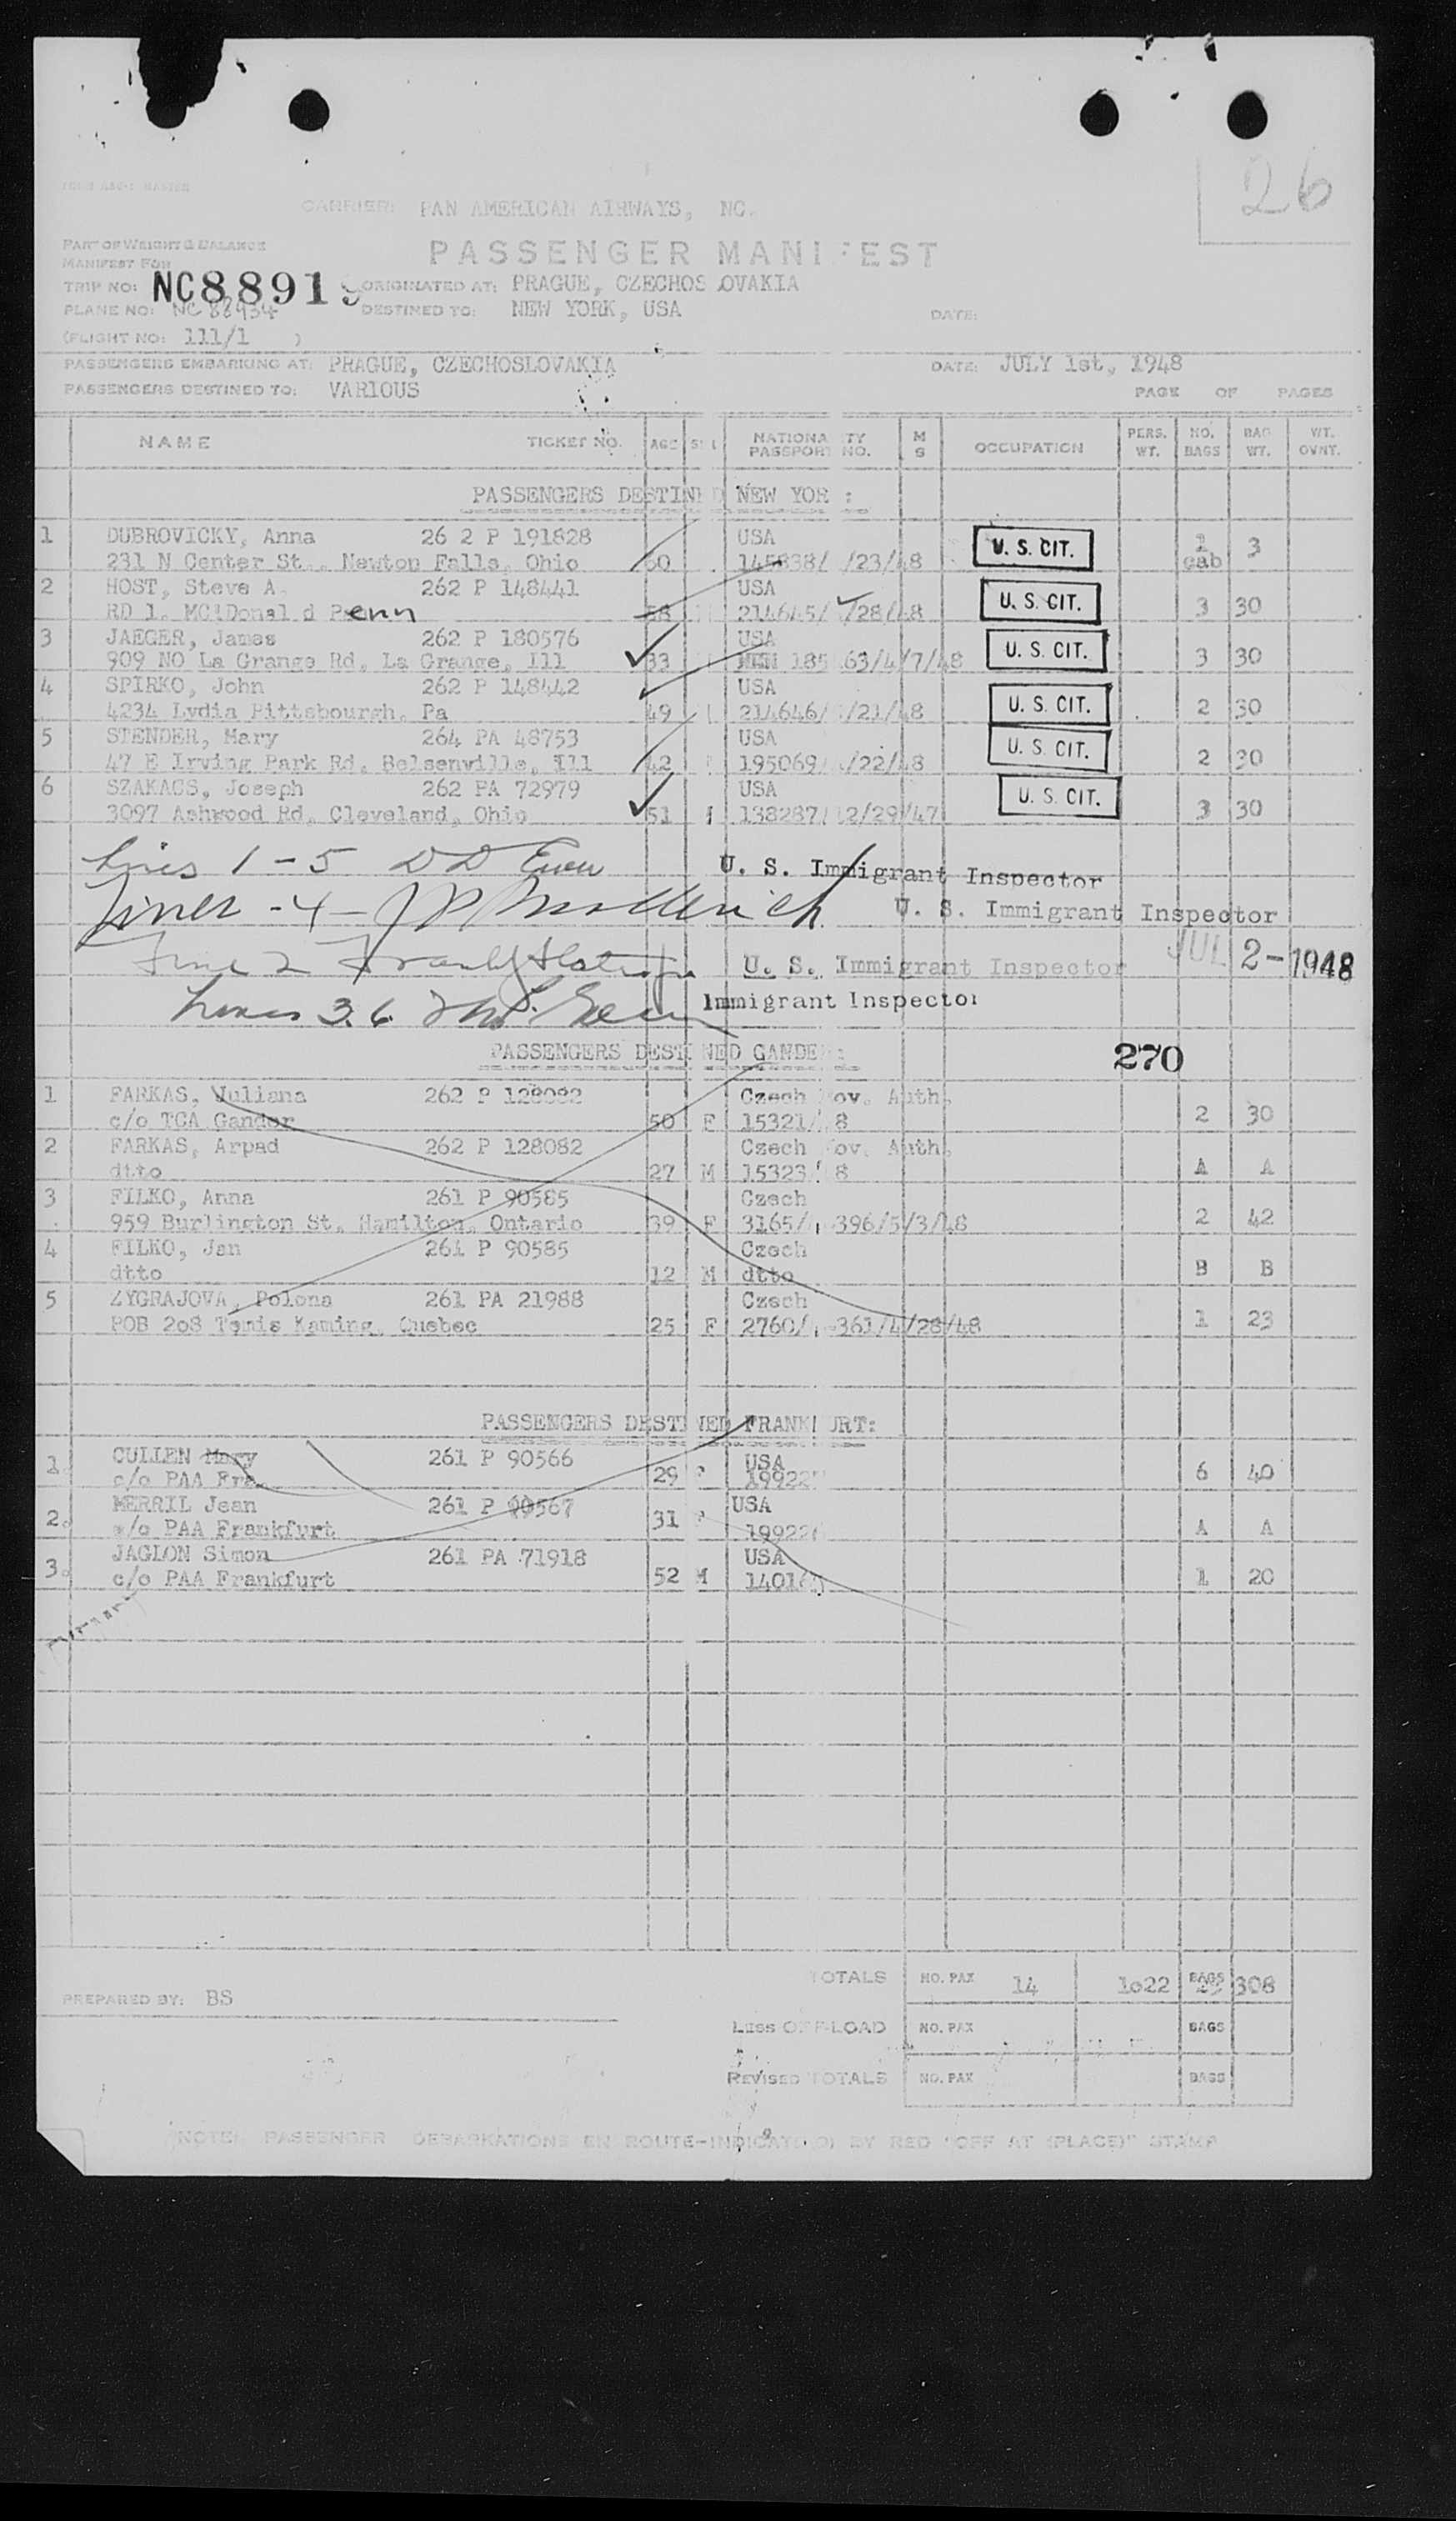 26
CARRIER: PAN AMERICAN AIRWAYS, NC.
PART OF WEIGHT & BALANCE
MANIFEST FOR
PASSENGER MANIFEST
TRIP NO: NC88919 ORIGINATED AT: PRAGUE, CZECHOS OVAKIA
PLANE NO: NC 88934 DESTINED TO: NEW YORK, USA DATE:
(FLIGHT NO: 111/1 )
PASSENGERS EMBARKING AT: PRAGUE, CZECHOSLOVAKIA DATE: JULY 1st, 1948
PASSENGERS DESTINED TO: VARIOUS PAGE OF PAGES
NAME TICKET NO. AGE NATIONALITY PASSPORT NO. M S OCCUPATION PERS. WT. NO. BAGS BAG WT. WT. OVNT.
PASSENGERS DESTINED NEW YOR :
1 DUBROVICKY, Anna 26 2 P 191828 USA U. S. CIT. 1 3
231 N Center St., Newton Falls, Ohio 60 145838/ /23/48 cab
2 HOST, Steve A. 262 P 148441 USA U. S. CIT.
RD 1. MC'Donal d Penn 58 214645/ /28/48 3 30
3 JAEGER, James 262 P 180576 USA U. S. CIT.
909 NO La Grange Rd, La Grange, Ill 33 185 63/4/7/48 3 30
4 SPIRKO, John 262 P 148442 USA U. S. CIT.
4234 Lydia Pittsbourgh, Pa 49 214646/ /21/48 2 30
5 STENDER, Mary 264 PA 48753 USA U. S. CIT.
47 E Irving Park Rd. Belsenville, Ill 42 195069/ /22/48 2 30
6 SZAKACS, Joseph 262 PA 72979 USA U. S. CIT.
3097 Ashwood Rd, Cleveland, Ohio 51 138287/ 12/29/47 3 30
Lines 1-5 U. S. Immigrant Inspector
Lines -4- U. S. Immigrant Inspector
Line 2 U. S. Immigrant Inspector JUL 2-1948
Lines 3.6. Immigrant Inspector
PASSENGERS DESTINED GANDE : 270
1 FARKAS, Juliana 262 P 128082 Czech ov. Auth.
c/o TCA Gander 50 F 15321/ 8 2 30
2 FARKAS, Arpad 262 P 128082 Czech ov. Auth.
dtto 27 M 15323 8 A A
3 FILKO, Anna 261 P 90585 Czech
959 Burlington St. Hamilton, Ontario 39 F 3165/ -396/5/3/48 2 42
4 FILKO, Jan 261 P 90585 Czech
dtto 12 M dtto B B
5 ZYGRAJOVA, Polona 261 PA 21988 Czech
POB 208 Temis Kaming, Quebec 25 F 2760/ -361/4/28/48 1 23
PASSENGERS DESTINED FRANKFURT:
1. CULLEN Mary 261 P 90566 USA
c/o PAA Fra. 29 F 19922 6 40
2. MERRIL Jean 261 P 90567 USA
c/o PAA Frankfurt 31 F 19922 A A
3. JAGLON Simon 261 PA 71918 USA
c/o PAA Frankfurt 52 M 1401 1 20
TOTALS NO. PAX 14 1022 BAGS 308
PREPARED BY: BS
LESS OFF-LOAD NO. PAX BAGS
REVISED TOTALS NO. PAX BAGS
(NOTE: PASSENGER DEBARKATIONS EN ROUTE-INDICATED BY RED "OFF AT (PLACE)" STAMP